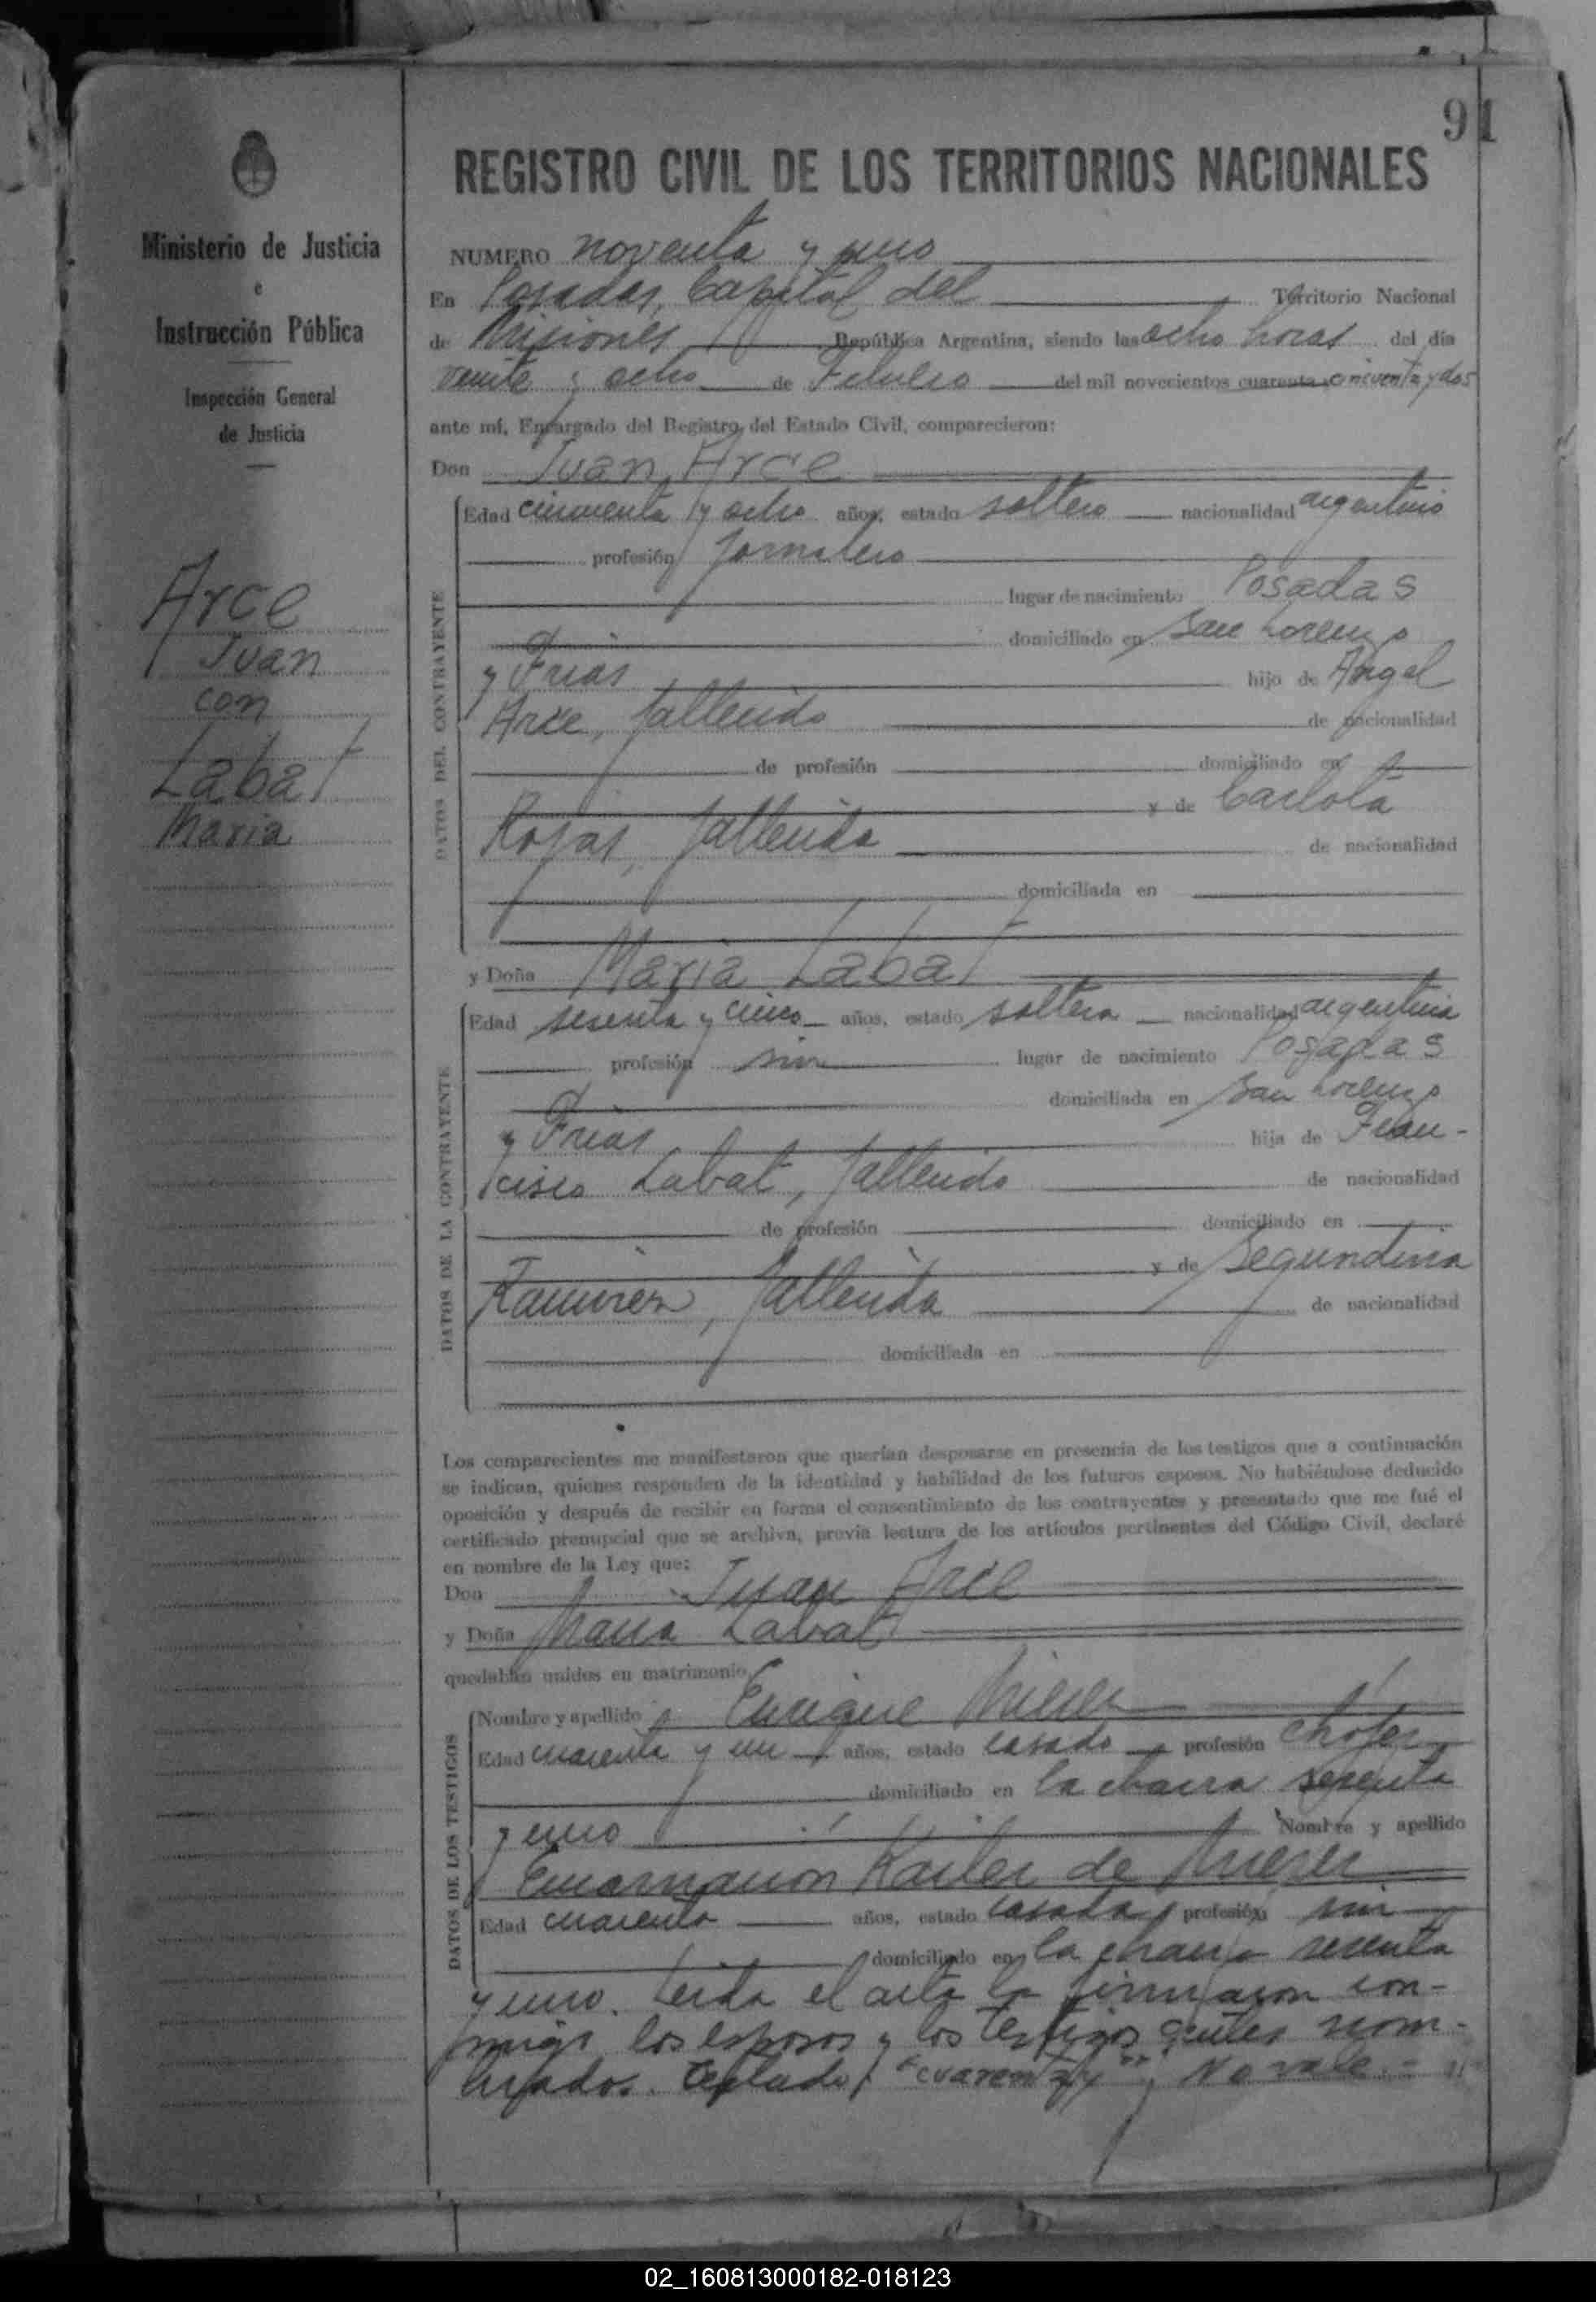 91
Ministerio de Justicia
e
Instrucción Pública
Inspección General
de Justicia
Arce
Juan
con
Labat
Maria
REGISTRO CIVIL DE LOS TERRITORIOS NACIONALES
NUMERO noventa y uno
En Posadas, Capital del Territorio Nacional
de Misiones República Argentina, siendo las ocho horas del día
veinte y ocho de Febrero del mil novecientos cuarenta cincuenta y dos
ante mí, Encargado del Registro del Estado Civil, comparecieron:
Don Juan Arce
DATOS DEL CONTRAYENTE
Edad cincuenta y ocho años, estado soltero nacionalidad argentino
profesión jornalero
lugar de nacimiento Posadas
domiciliado en San Lorenzo
y Frias hijo de Angel
Arce, fallecido de nacionalidad
de profesión domiciliado en
y de Carlota
Rojas, fallecida de nacionalidad
domiciliada en
y Doña Maria Labat
DATOS DE LA CONTRAYENTE
Edad sesenta y cinco años, estado soltera nacionalidad argentina
profesión sin lugar de nacimiento Posadas
domiciliada en San Lorenzo
y Frias hija de Fran-
cisco Labat, fallecido de nacionalidad
de profesión domiciliado en
y de Segundina
Ramirez, fallecida de nacionalidad
domiciliada en
Los comparecientes me manifestaron que querían desposarse en presencia de los testigos que a continuación
se indican, quienes responden de la identidad y habilidad de los futuros esposos. No habiéndose deducido
oposición y después de recibir en forma el consentimiento de los contrayentes y presentado que me fué el
certificado prenupcial que se archiva, previa lectura de los artículos pertinentes del Código Civil, declaré
en nombre de la Ley que:
Don Juan Arce
y Doña Maria Labat
quedaban unidos en matrimonio
DATOS DE LOS TESTIGOS
Nombre y apellido Enrique Mierez
Edad cuarenta y un años, estado casado profesión chofer
domiciliado en la chacra sesenta
y uno Nombre y apellido
Encarnacion de Mierez
Edad cuarenta años, estado casada profesión sin
domiciliado en la chacra sesenta
y uno. Leida el acta la firmaron con-
migo los esposos y los testigos antes nom-
brados. Testado: "cuarenta": No vale.-
02_160813000182-018123